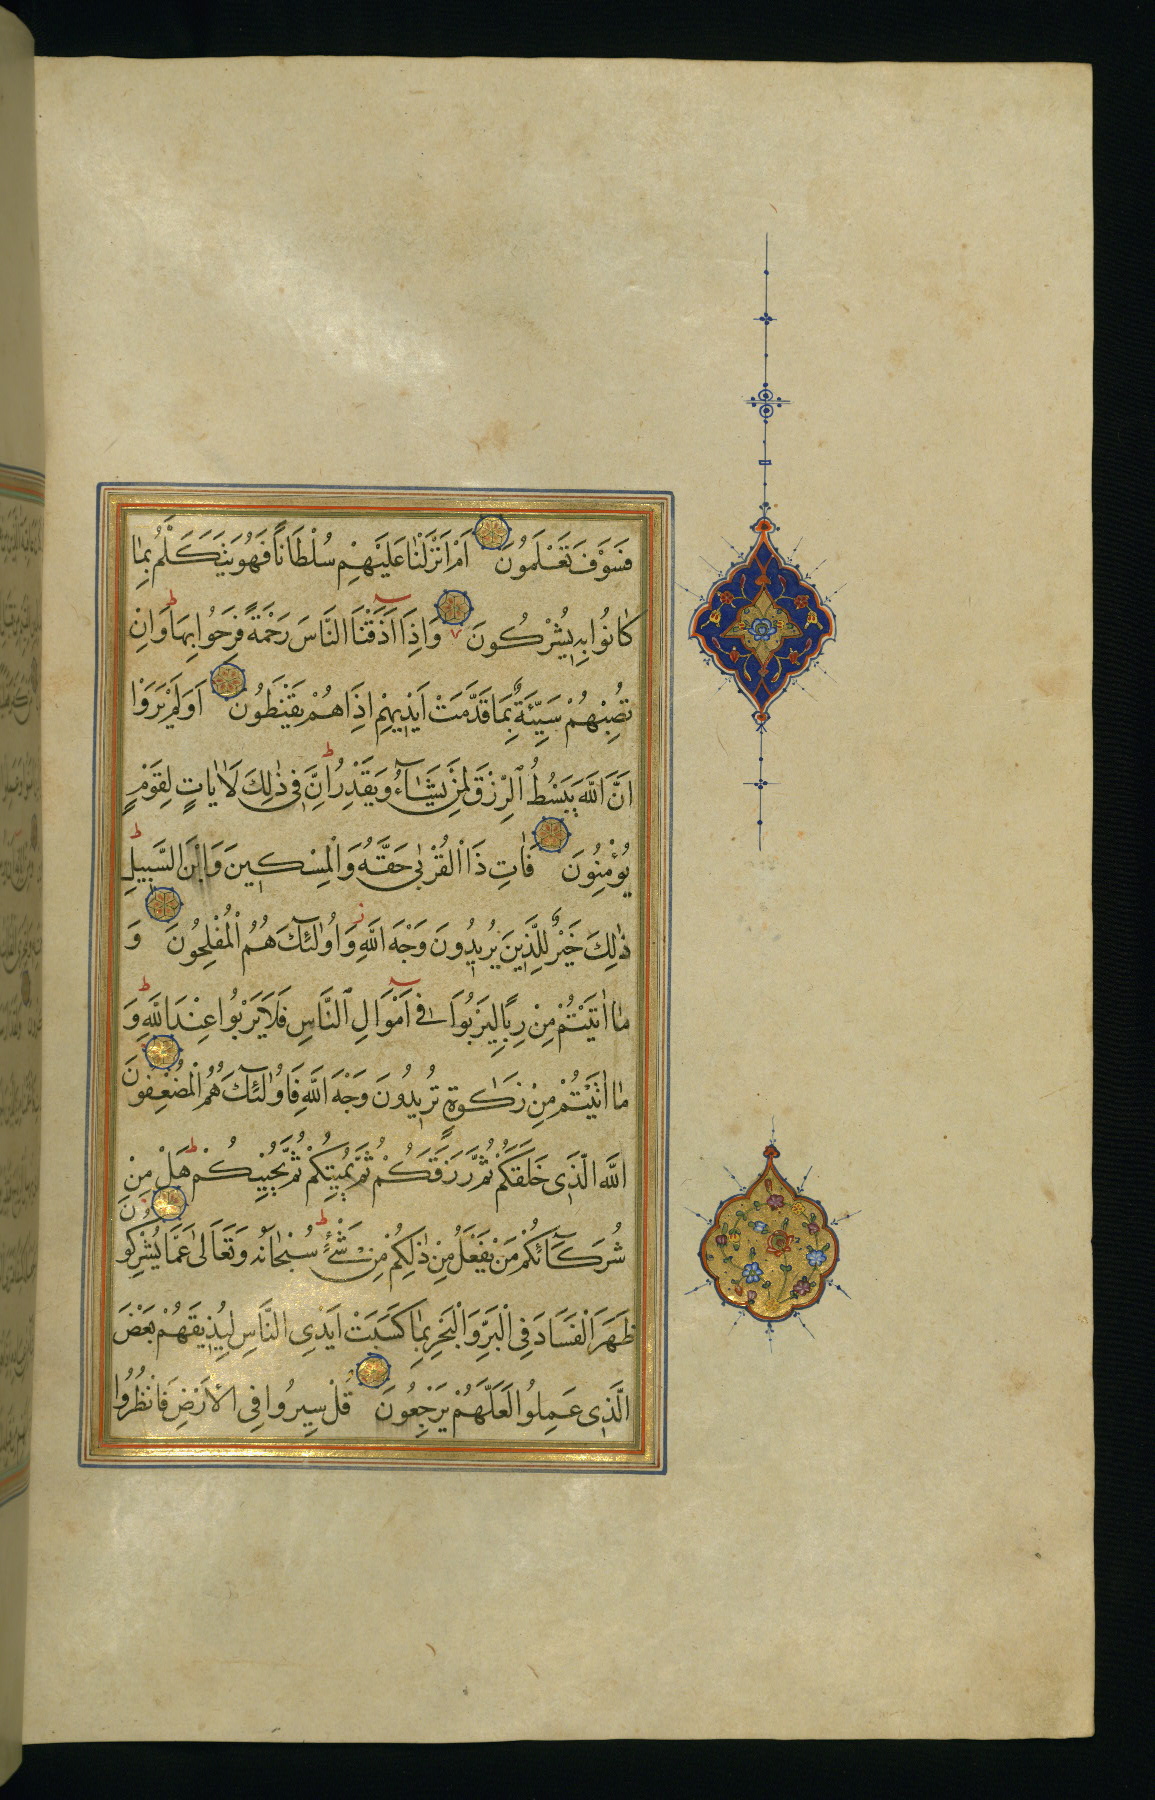 فَسَوْفَ تَعْلَمُونَ اَمْ اَنْزَلْنَا عَلَيْهِمْ سُلْطَانًا فَهُوَ يَتَكَلَّمُ بِمَا
كَانُوا بِهِ يُشْرِكُونَ وَاِذَا اَذَقْنَا النَّاسَ رَحْمَةً فَرِحُوا بِهَا وَاِنْ
تُصِبْهُمْ سَيِّئَةٌ بِمَا قَدَّمَتْ اَيْدِيهِمْ اِذَا هُمْ يَقْنَطُونَ اَوَلَمْ يَرَوْا
اَنَّ اللّٰهَ يَبْسُطُ الرِّزْقَ لِمَنْ يَشَاۤءُ وَيَقْدِرُ اِنَّ فِى ذٰلِكَ لَاٰيَاتٍ لِقَوْمٍ
يُؤْمِنُونَ فَاٰتِ ذَا الْقُرْبٰى حَقَّهُ وَالْمِسْكِينَ وَابْنَ السَّبِيلِ
ذٰلِكَ خَيْرٌ لِلَّذِينَ يُرِيدُونَ وَجْهَ اللّٰهِ وَاُولٰۤئِكَ هُمُ الْمُفْلِحُونَ وَ
مَا اٰتَيْتُمْ مِنْ رِبًا لِيَرْبُوَا فِى اَمْوَالِ النَّاسِ فَلَا يَرْبُوا عِنْدَ اللّٰهِ وَ
مَا اٰتَيْتُمْ مِنْ زَكٰوةٍ تُرِيدُونَ وَجْهَ اللّٰهِ فَاُولٰۤئِكَ هُمُ الْمُضْعِفُونَ
اللّٰهُ الَّذِى خَلَقَكُمْ ثُمَّ رَزَقَكُمْ ثُمَّ يُمِيتُكُمْ ثُمَّ يُحْيِيكُمْ هَلْ مِنْ
شُرَكَاۤئِكُمْ مَنْ يَفْعَلُ مِنْ ذٰلِكُمْ مِنْ شَىْءٍ سُبْحَانَهُ وَتَعَالٰى عَمَّا يُشْرِكُونَ
ظَهَرَ الْفَسَادُ فِى الْبَرِّ وَالْبَحْرِ بِمَا كَسَبَتْ اَيْدِى النَّاسِ لِيُذِيقَهُمْ بَعْضَ
الَّذِى عَمِلُوا لَعَلَّهُمْ يَرْجِعُونَ قُلْ سِيرُوا فِى الْاَرْضِ فَانْظُرُوا